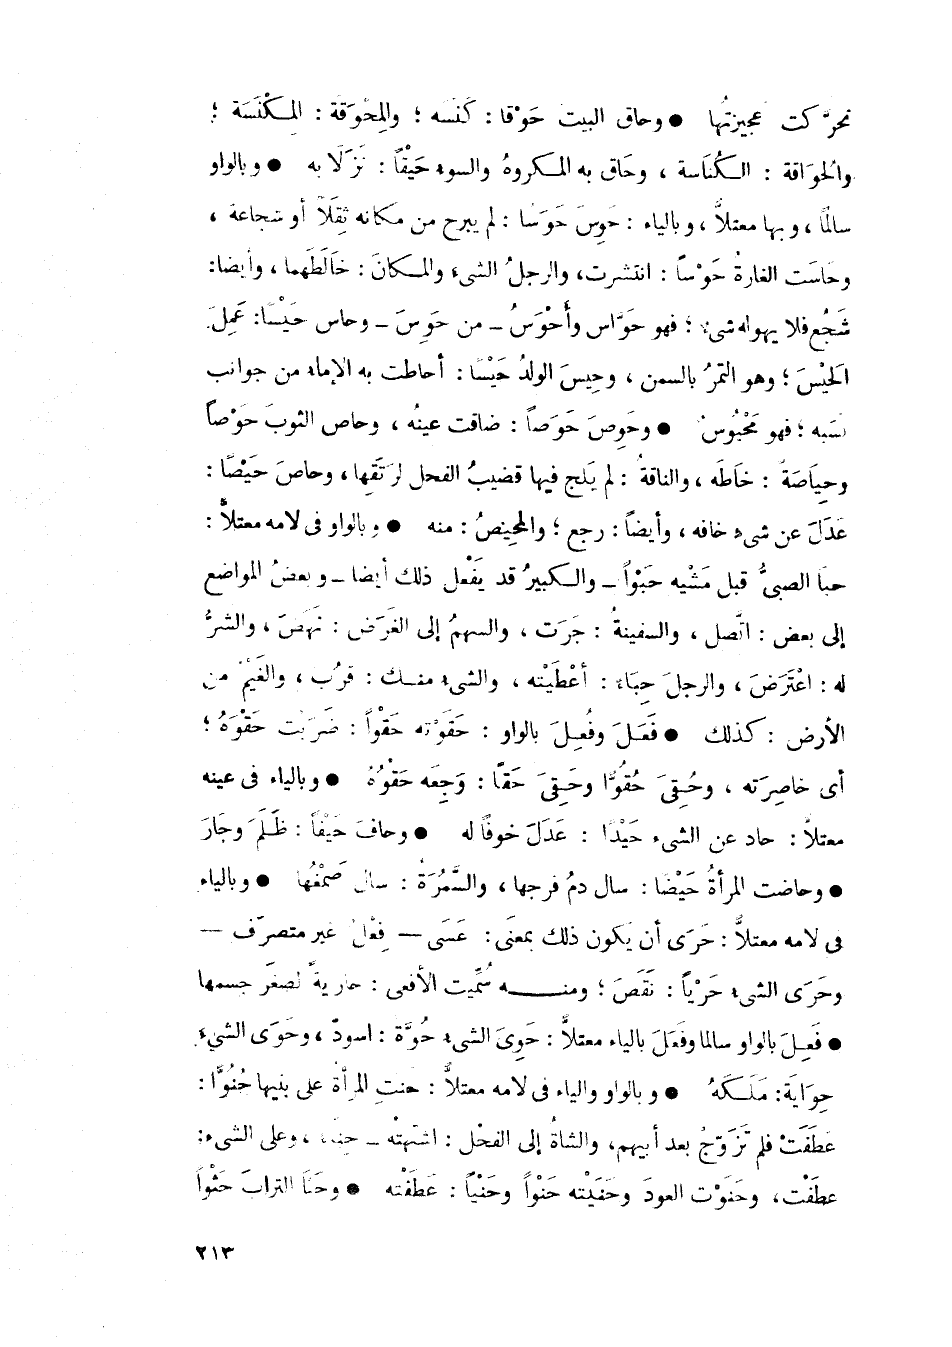 تحرَّكت عجيزتُها ● وحاق البيت حَوْقا : كَنَسه ؛ والمِحْوَقة : المِكْنَسَة ؛
والحُوَاقة : الكُنَاسة ، وحَاق به المكروهُ والسوء حَيْقاً : نَزَلا به ● وبالواو
سالمًا ، وبها معتلاًّ ، وبالياء : حَوِسَ حَوَسًا : لم يبرح من مكانه ثِقَلاً أو شجاعة ،
وحَاسَت الغارةُ حَوْساً : انتشرت ، والرجلُ الشيء والمكانَ : خَالَطَهما ، وأيضا:
شَجُع فلا يهوله شىء ؛ فهو حَوَّاس وأَحْوَسُ ـ من حَوِسَ ـ وحاس حَيْسًا: عَمِلَ
الحَيْسَ ؛ وهو التمرُ بالسمن ، وحِيسَ الولدُ حَيْسًا : أحاطت به الإماء من جوانب
نسَبه ؛ فهو مَحْيُوسٌ ● وحَوِصَ حَوَصاً : ضاقت عينُه ، وحاص الثوبَ حَوْصاً
وحِيَاصَةً : خَاطَه ، والناقةُ : لم يَلج فيها قضيبُ الفحل لرَتَقِها ، وحاصَ حَيْصًا :
عَدَلَ عن شىء خافه ، وأيضاً : رجع ؛ والمَحِيصُ : منه ● وبالواو فى لامه معتلاًّ :
حبا الصبىُّ قبل مَشْيه حَبْواً ـ والكبيرُ قد يَفْعل ذلك أيضا ـ وبعضُ المواضع
إلى بعض : اتَّصل ، والسفينةُ : جَرَت ، والسهمُ إلى الغَرَض : نَهَضَ ، والشرُّ
له : اعْتَرَضَ ، والرجلَ حِبَاءً : أعْطَيْته ، والشىء منك : قرُب ، والغَيْمُ من
الأرض : كذلك ● فَعَلَ وفُعِلَ بالواو : حَقَوْته حَقْواً : ضَرَبْت حَقْوَهُ ؛
أى خاصِرَته ، وحُقِىَ حُقُوًّا وحَقِىَ حَقًا : وَجِعَه حَقْوُهُ ● وبالياء فى عينه
معتلاًّ : حاد عن الشىء حَيْدًا : عَدَلَ خوفًا له ● وحافَ حَيْفاً : ظَلَمَ وجَارَ
● وحاضت المرأةُ حَيْضًا : سال دمُ فرجها ، والسَّمُرَةُ : سال صَمْغُها ● وبالياء
فى لامه معتلاًّ : حَرَى أن يكون ذلك بمعنَى : عَسَى — فِعْلٌ غير متصرّف —
وحَرَى الشىء حَرْياً : نَقَصَ ؛ ومنه سُمِّيت الأفعى : حاريةً لصغَر جسمها
● فَعِلَ بالواو سالما وفَعَلَ بالياء معتلاًّ : حَوِىَ الشىء حُوَّة : اسودّ ، وحَوَى الشىء
حِوَايَة: مَلَكَهُ ● وبالواو والياء فى لامه معتلاًّ : حنت المرأة على بنيها حُنُوًّا :
عَطَفَتْ فلم تَزَوَّجْ بعد أبيهم، والشاةُ إلى الفحْل : اشتهته ـ حِنَاء ، وعلى الشىء :
عطفْت، وحَنَوْت العودَ وحَنَيْته حَنْواً وحَنْياً : عَطَفْته ● وحَثَا الترابَ حَثْواً
٢١٣